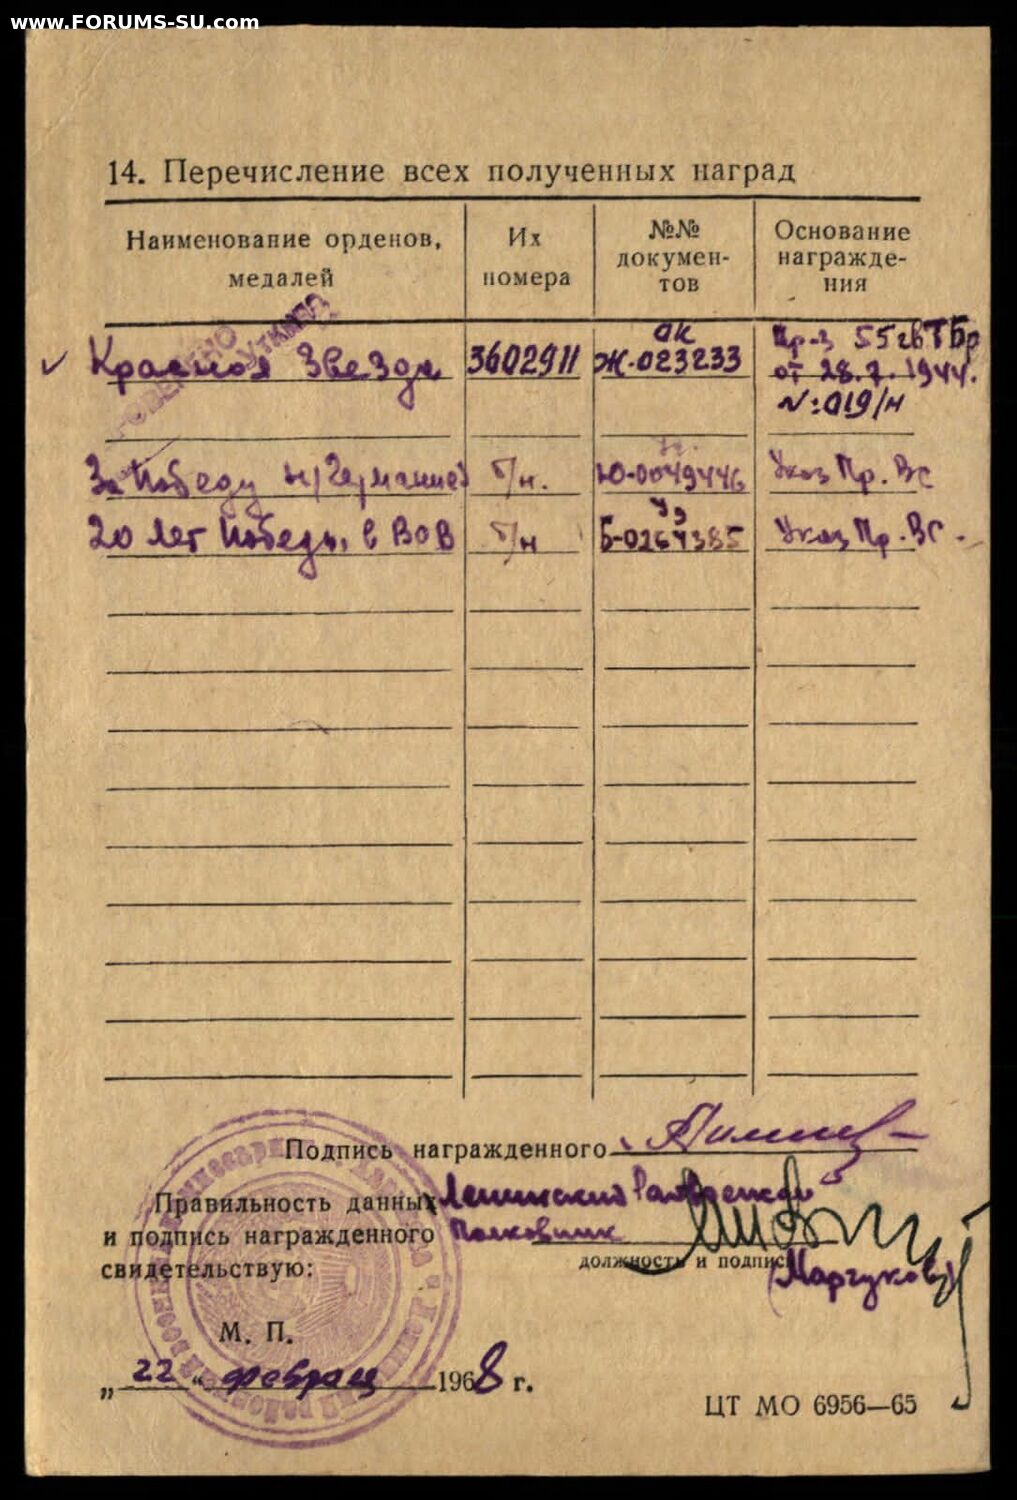 www.FORUMS-SU.com
14. Перечисление всех полученных наград
Наименование орденов, медалей
Их номера
№№ докумен-тов
Основание награжде-ния
Красная Звезда 3602911 Ж-023233 Пр-з 55 гв ТБр
от 28.7.1944.
№:019/н
За Победу н/Германией б/н. Ю-0049446 Указ Пр. ВС
20 лет Победы в ВОВ б/н Б-0264385 Указ Пр. ВС.
Подпись награжденного
Правильность данных Ленинский
и подпись награжденного Полковник
должность и подпись
свидетельствую:
М. П.
„ 22 “ февраля 1968 г.
ЦТ МО 6956—65